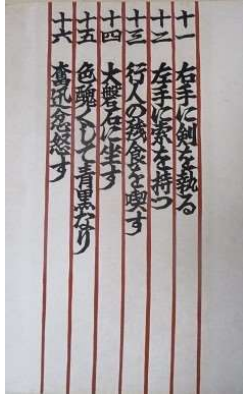 十一　右手に剣を執る
十二　左手に索を持つ
十三　行人の残食を喫す
十四　大磐石に坐す
十五　色醜くして青黒なり
十六　奮迅忿怒す